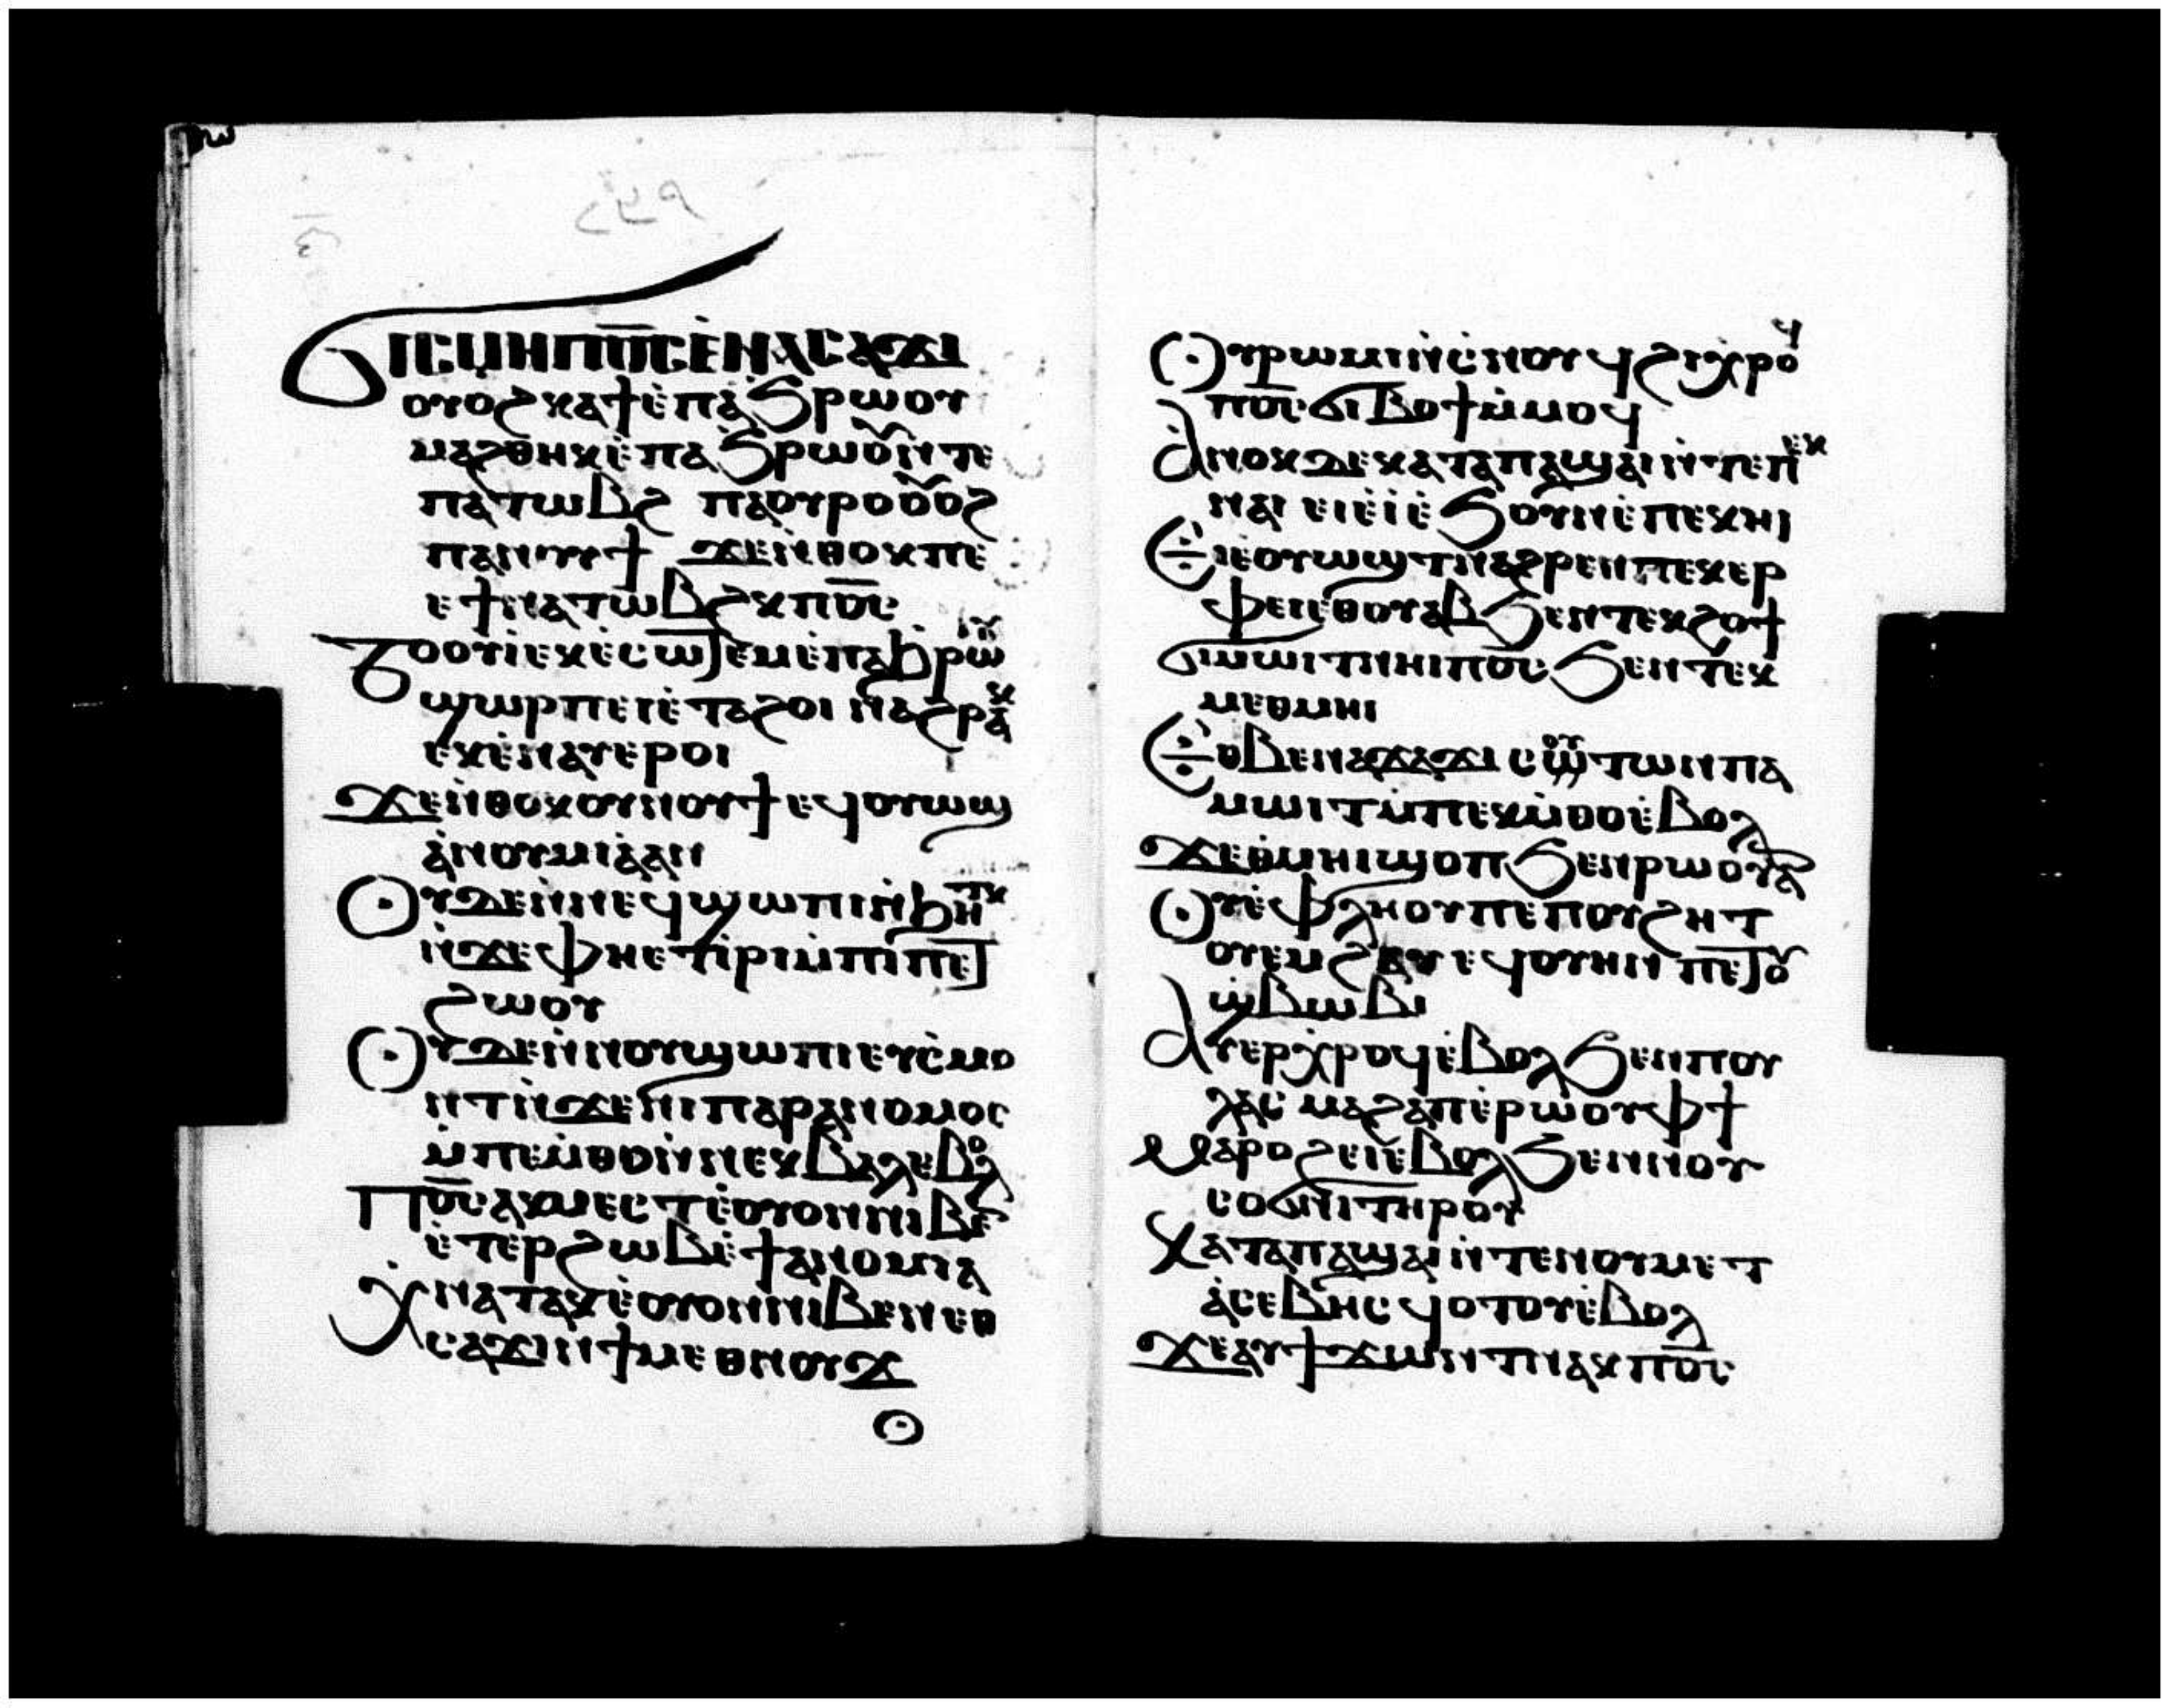 ϬⲓⲥⲙⲏⲠ̅ⲟ̅ⲥ̅ⲉ̀ⲛⲁⲥⲁϫⲓ
ⲟⲩⲟϩⲕⲁϯⲉ̀ⲡⲁϧⲣⲱⲟⲩ
ⲙⲁϩⲑⲏⲕⲉ̀ⲡⲁϧⲣⲱⲟⲩⲛ̀ⲧⲉ
ⲡⲁⲧⲱⲃϩ ⲡⲁⲟⲩⲣⲟⲟⲩⲟϩ
ⲡⲁⲛⲟⲩϯ ϫⲉⲛ̀ⲑⲟⲕⲡⲉ
ⲉϯⲛⲁⲧⲱⲃϩⲕⲡ̅ⲟ̅ⲥ̅
Ⲧⲟⲟⲩⲓ̀ⲉⲕⲉ̀ⲥⲱⲧⲉⲙⲉ̀ⲡⲁϧⲣⲱⲟⲩ
ϣⲱⲣⲡⲉⲓⲉ̀ⲧⲁϩⲟⲓ ⲛⲁϩⲣⲁⲕ
ⲉⲕⲉ̀ⲛⲁⲩⲉⲣⲟⲓ
Ϫⲉⲛ̀ⲑⲟⲕⲟⲩⲛⲟⲩϯⲉϥⲟⲩⲱϣ
ⲁ̀ⲛⲟⲙⲓⲁ̀ⲁⲛ
Ⲟⲩⲇⲉⲛ̀ⲛⲉϥϣⲱⲡⲓⲛ̀ϧⲏⲧⲕ
ⲛ̀ϫⲉⲫⲏⲉⲧⲓ̀ⲣⲓⲙ̀ⲡⲓⲡⲉⲧ
ϩⲱⲟⲩ
Ⲟⲩⲇⲉⲛ̀ⲛⲟⲩϣⲱⲡⲓⲉⲩⲥ̀ⲙⲟ
ⲛⲧⲛ̀ϫⲉⲛⲓⲡⲁⲣⲁⲛⲟⲙⲟⲥ
ⲙ̀ⲡⲉⲙ̀ⲑⲟⲛ̀ⲛⲉⲕⲃⲁⲗⲉⲃⲟⲗ
Ⲡ̅ⲟ̅ⲥ̅ⲁⲕⲙⲉⲥⲧⲉ̀ⲟⲩⲟⲛⲛⲓⲃⲉⲛ
ⲉ̀ⲧⲉⲣϩⲱⲃⲉ̀ϯⲁⲛⲟⲙⲓⲁ
Ⲭ̀ⲛⲁⲧⲁⲕⲉ̀ⲟⲩⲟⲛⲛⲓⲃⲉⲛⲉⲑ
ⲥⲁϫⲓⲛϯⲙⲉⲑⲛⲟⲩϫ
Ⲟⲩⲣⲱⲙⲓⲛ̀ⲥ̀ⲛⲟϥϩⲓⲭⲣⲟϥ
ⲡ̅ⲟ̅ⲥ̅ϭⲓⲃⲟϯⲙ̀ⲙⲟϥ
Ⲁ̀ⲛⲟⲕⲇⲉⲕⲁⲧⲁⲡⲁϣⲁⲓⲛ̀ⲧⲉⲡⲉⲕ
ⲛⲁⲓ ⲉⲓⲉ̀ⲓ̀ⲉ̀ϧⲟⲩⲛⲉ̀ⲡⲉⲕⲏⲓ
Ⲉⲓⲉ̀ⲟⲩⲱϣⲧⲛⲁϩⲣⲉⲛⲡⲉⲕⲉⲣ
ⲫⲉⲓⲉⲑⲟⲩⲁⲃϧⲉⲛⲧⲉⲕϩⲟϯ
ϭⲓⲙⲱⲓⲧⲛⲏⲓⲡ̅ⲟ̅ⲥ̅ϧⲉⲛⲧⲉⲕ
ⲙⲉⲑⲙⲏⲓ
Ⲉⲑⲃⲉⲛⲁϫⲁϫⲓ ⲥⲟⲩⲧⲱⲛⲡⲁ
ⲙⲱⲓⲧⲙ̀ⲡⲉⲕⲙ̀ⲑⲟⲉ̀ⲃⲟⲗ
Ϫⲉⲑⲙⲏⲓϣⲟⲡϧⲉⲛⲣⲱⲟⲩⲁⲛ
Ⲟⲩⲉ̀ⲫⲗⲏⲟⲩⲡⲉⲡⲟⲩϩⲏⲧ
ⲟⲩⲉⲙϩⲁⲩⲉϥⲟⲩⲏⲛ ⲡⲉⲧⲟⲩ
ϣ̀ⲃⲱⲃⲓ
Ⲁⲩⲉⲣⲭⲣⲟϥⲉ̀ⲃⲟⲗϧⲉⲛⲡⲟⲩ
ⲗⲁⲥ ⲙⲁϩⲁⲡⲉ̀ⲣⲱⲟⲩⲫϯ
Ⲙⲁⲣⲟⲩϩⲉⲓⲉ̀ⲃⲟⲗϧⲉⲛⲛⲟⲩ
ⲥⲟϭⲛⲓⲧⲏⲣⲟⲩ
Ⲕⲁⲧⲁⲡⲁϣⲁⲓⲛ̀ⲧⲉⲛⲟⲩⲙⲉⲧ
ⲁ̀ⲥⲉⲃⲏⲥ ϥⲟⲧⲟⲩⲉ̀ⲃⲟⲗ
Ϫⲉⲁⲩϯϫⲱⲛⲧⲛⲁⲕⲡ̅ⲟ̅ⲥ̅